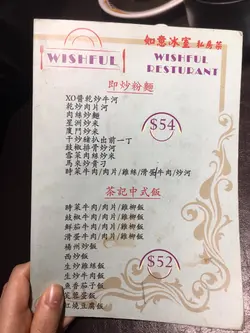 如意冰室 私房菜
WISHFUL
WISHFUL
RESTURANT
即炒粉麵
XO醬乾炒牛河
乾炒肉片河
肉絲炒麵
星洲炒米
廈門炒米
干炒豬扒出前一丁
豉椒排骨炒河
雪菜肉絲炒米
馬來炒貴刁
時菜牛肉/肉片/雞絲/滑蛋牛肉/炒河
$54
茶記中式飯
時菜牛肉/肉片/雞柳飯
豉椒牛肉/肉片/雞柳飯
鮮茄牛肉/肉片/雞柳飯
滑蛋牛肉/肉片/雞柳飯
楊州炒飯
西炒飯
生炒雞絲飯
生炒牛肉飯
魚香茄子飯
紅燒豆腐飯
$52